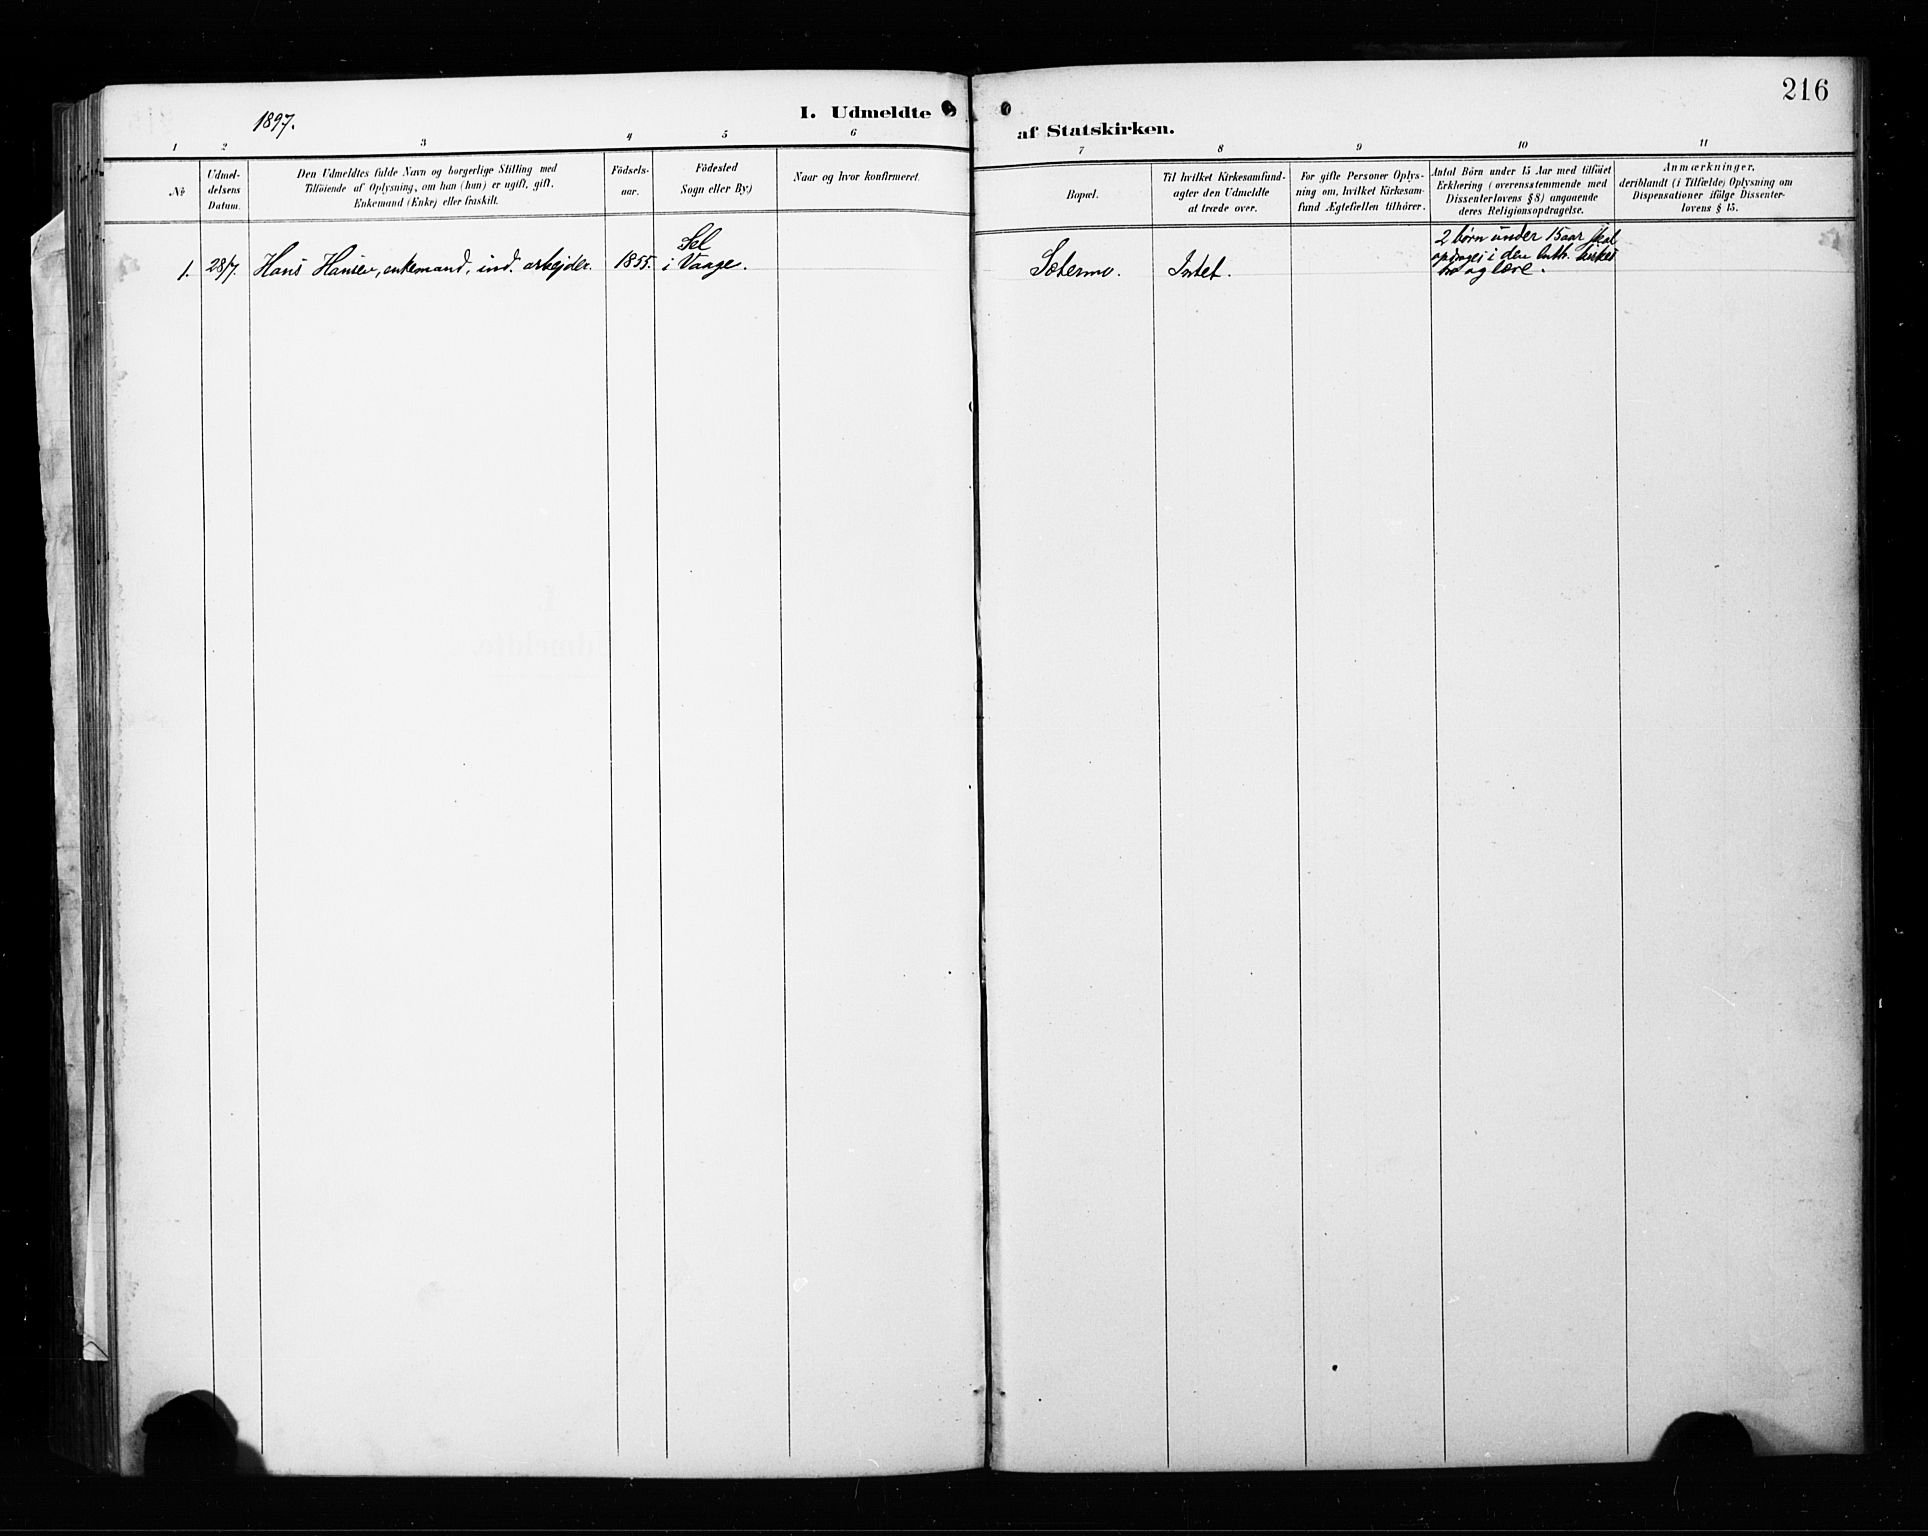 216
1897.
I. Udmeldte
af Statskirken.
1 2 3 4 5 6
7 8 9 10 11
No
Udmel-
delsens
Datum.
Den Udmeldtes fulde Navn og borgerlige Stilling med
Tilföiende af Oplysning, om han (hun) er ugift, gift,
Enkemand (Enke) eller fraskilt.
Födsels-
aar.
Födested
Sogn eller By.)
Naar og hvor konfirmeret.
Bopæl.
Til hvilket Kirkesamfund-
agter den Udmeldte
at træde over.
For gifte Personer Oplys-
ning om, hvilket Kirkesam-
fund Ægtefællen tilhörer.
Antal Börn under 15 Aar med tilföiet
Erklæring (overensstemmende med
Dissenterlovens § 8) angaaende
deres Religionsopdragelse.
Anmærkninger,
deriblandt (i Tilfælde) Oplysning om
Dispensationer ifölge Dissenter-
lovens § 15.
1.
28/7
Hans Hansen, enkemand, ind. arbejder.
1855.
Sel
i Vaage.
Sætermo.
Intet.
2 børn under 15 aar skal
opdrages i den luth. kirkes
tro og lære.